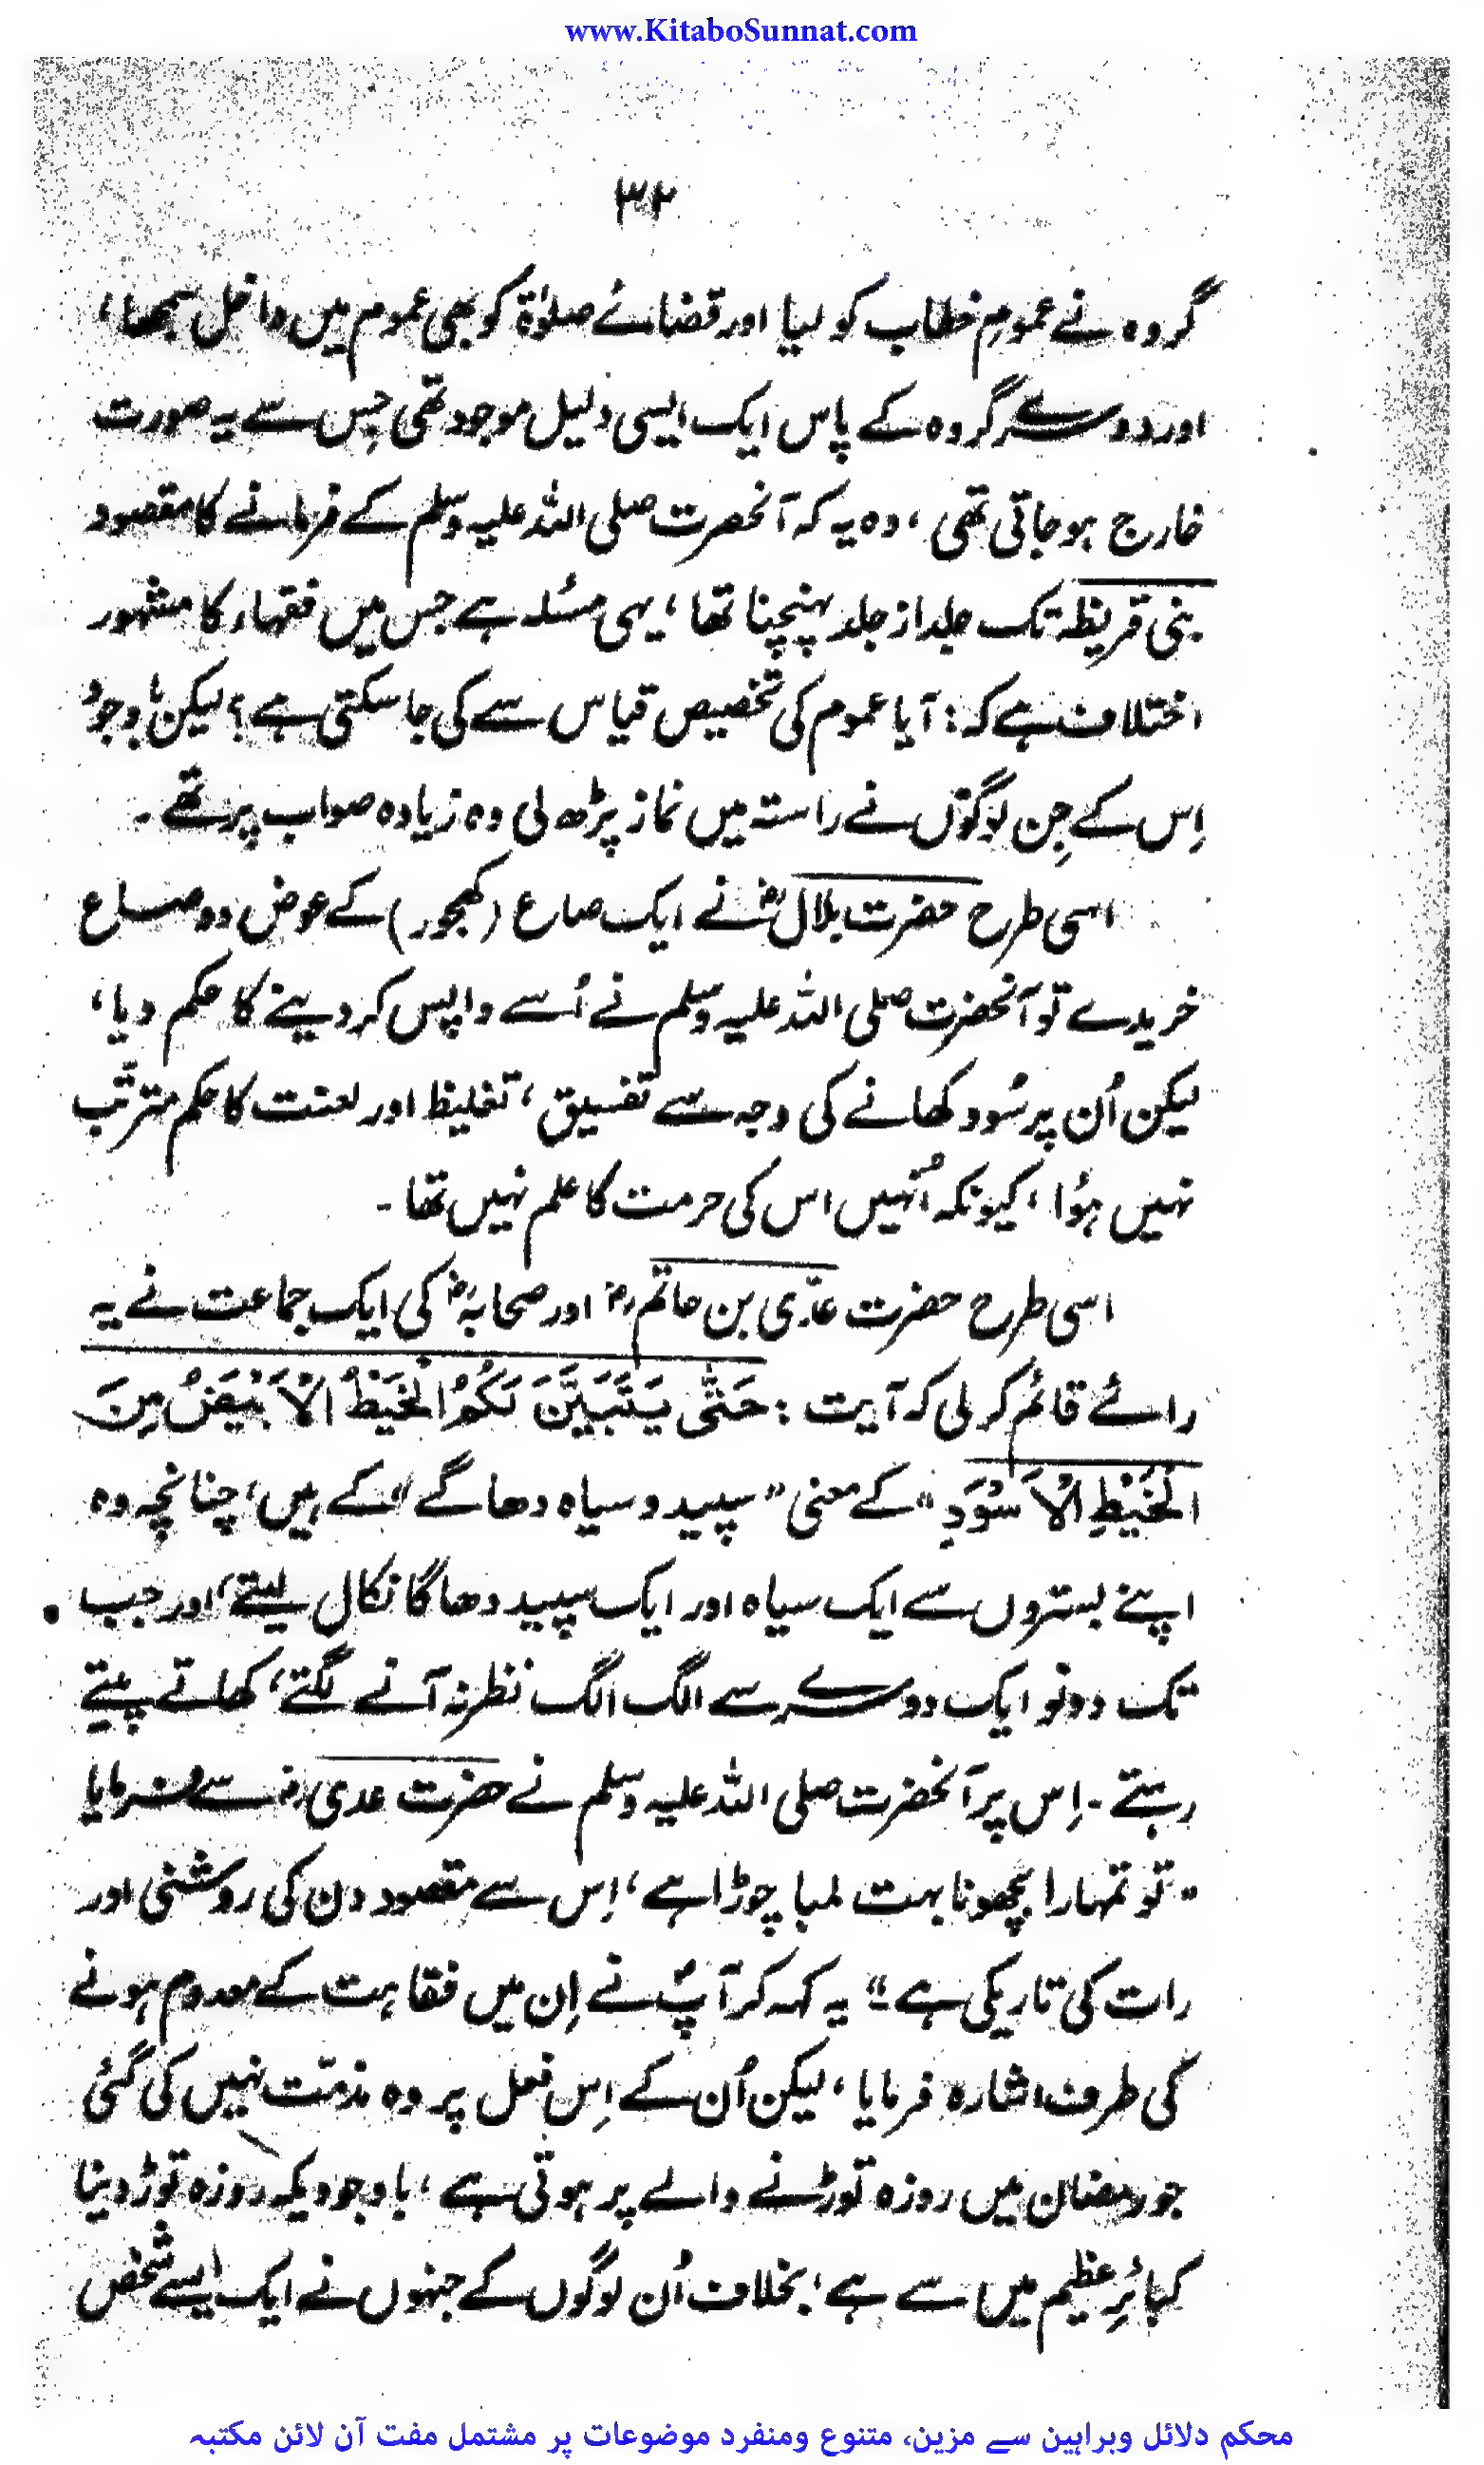 www.KitaboSunnat.com
۳۲
گروہ نے عمومِ خطاب کو لیا اور قضائے صلوٰۃ کو بھی عموم میں داخل سمجھا،
اور دوسرے گروہ کے پاس ایک ایسی دلیل موجود تھی جِس سے یہ صورت
خارج ہوجاتی تھی، وہ یہ کہ آنحضرت صلی اللہ علیہ وسلم کے فرمانے کا مقصود
بنی قریظہ تک جلد از جلد پہنچنا تھا، یہی مسئلہ ہے جس میں فقہاء کا مشہور
اختلاف ہے کہ: آیا عموم کی تخصیص قیاس سے کی جاسکتی ہے؟ لیکن باوجود
اِس کے جِن لوگوں نے راستہ میں نماز پڑھ لی وہ زیادہ صواب پر تھے۔
اسی طرح حضرت بلالؓ نے ایک صاع (کھجور) کے عوض دو صاع
خریدے تو آنحضرت صلی اللہ علیہ وسلم نے اُسے واپس کردینے کا حکم دیا،
لیکن اُن پر سُود کھانے کی وجہ سے تفسیق، تغلیظ اور لعنت کا حکم مترتّب
نہیں ہوُا، کیونکہ اُنہیں اس کی حرمت کا علم نہیں تھا۔
اسی طرح حضرت عدّی بن حاتمؓ اور صحابہؓ کی ایک جماعت نے یہ
رائے قائم کرلی کہ آیت: حَتّٰی یَتَبَیَّنَ لَکُمُ الْخَیْطُ الْاَبْیَضُ مِنَ
الْخَیْطِ الْاَسْوَدِ" کے معنی "سپید و سیاہ دھاگے" کے ہیں، چنانچہ وہ
اپنے بستروں سے ایک سیاہ اور ایک سپید دھاگا نکال لیتے، اور جب
تک دونو ایک دوسرے سے الگ الگ نظر نہ آنے لگتے، کھاتے پیتے
رہتے۔ اِس پر آنحضرت صلی اللہ علیہ وسلم نے حضرت عدیؓ سے فرمایا
"تو تمہارا بچھونا بہت لمبا چوڑا ہے، اِس سے مقصود دن کی روشنی اور
رات کی تاریکی ہے" یہ کہہ کر آپؐ نے اِن میں فقاہت کے معدوم ہونے
کی طرف اشارہ فرمایا، لیکن اُن کے اِس فعل پر وہ مذمّت نہیں کی گئی
جو رمضان میں روزہ توڑنے والے پر ہوتی ہے، باوجودیکہ روزہ توڑ دینا
کبائرِ عظیم میں سے ہے، بخلاف اُن لوگوں کے جنہوں نے ایک ایسے شخص
محکم دلائل وبراہین سے مزین، متنوع ومنفرد موضوعات پر مشتمل مفت آن لائن مکتبہ